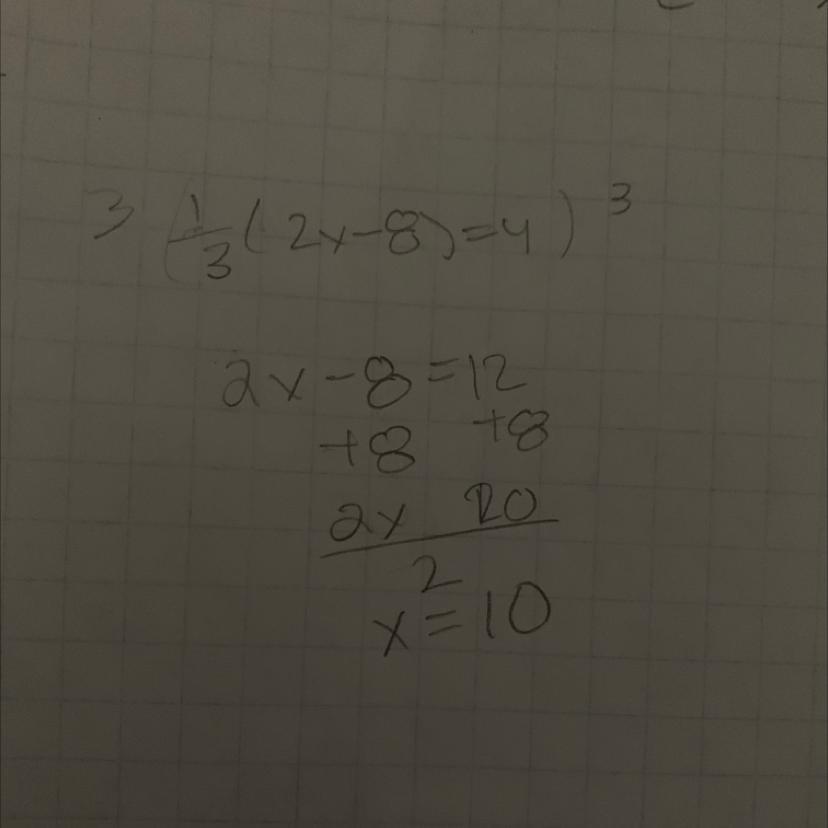 3 (1/3(2x-8)=4)3
2x-8=12
+8 +8
2x 20
2
x=10